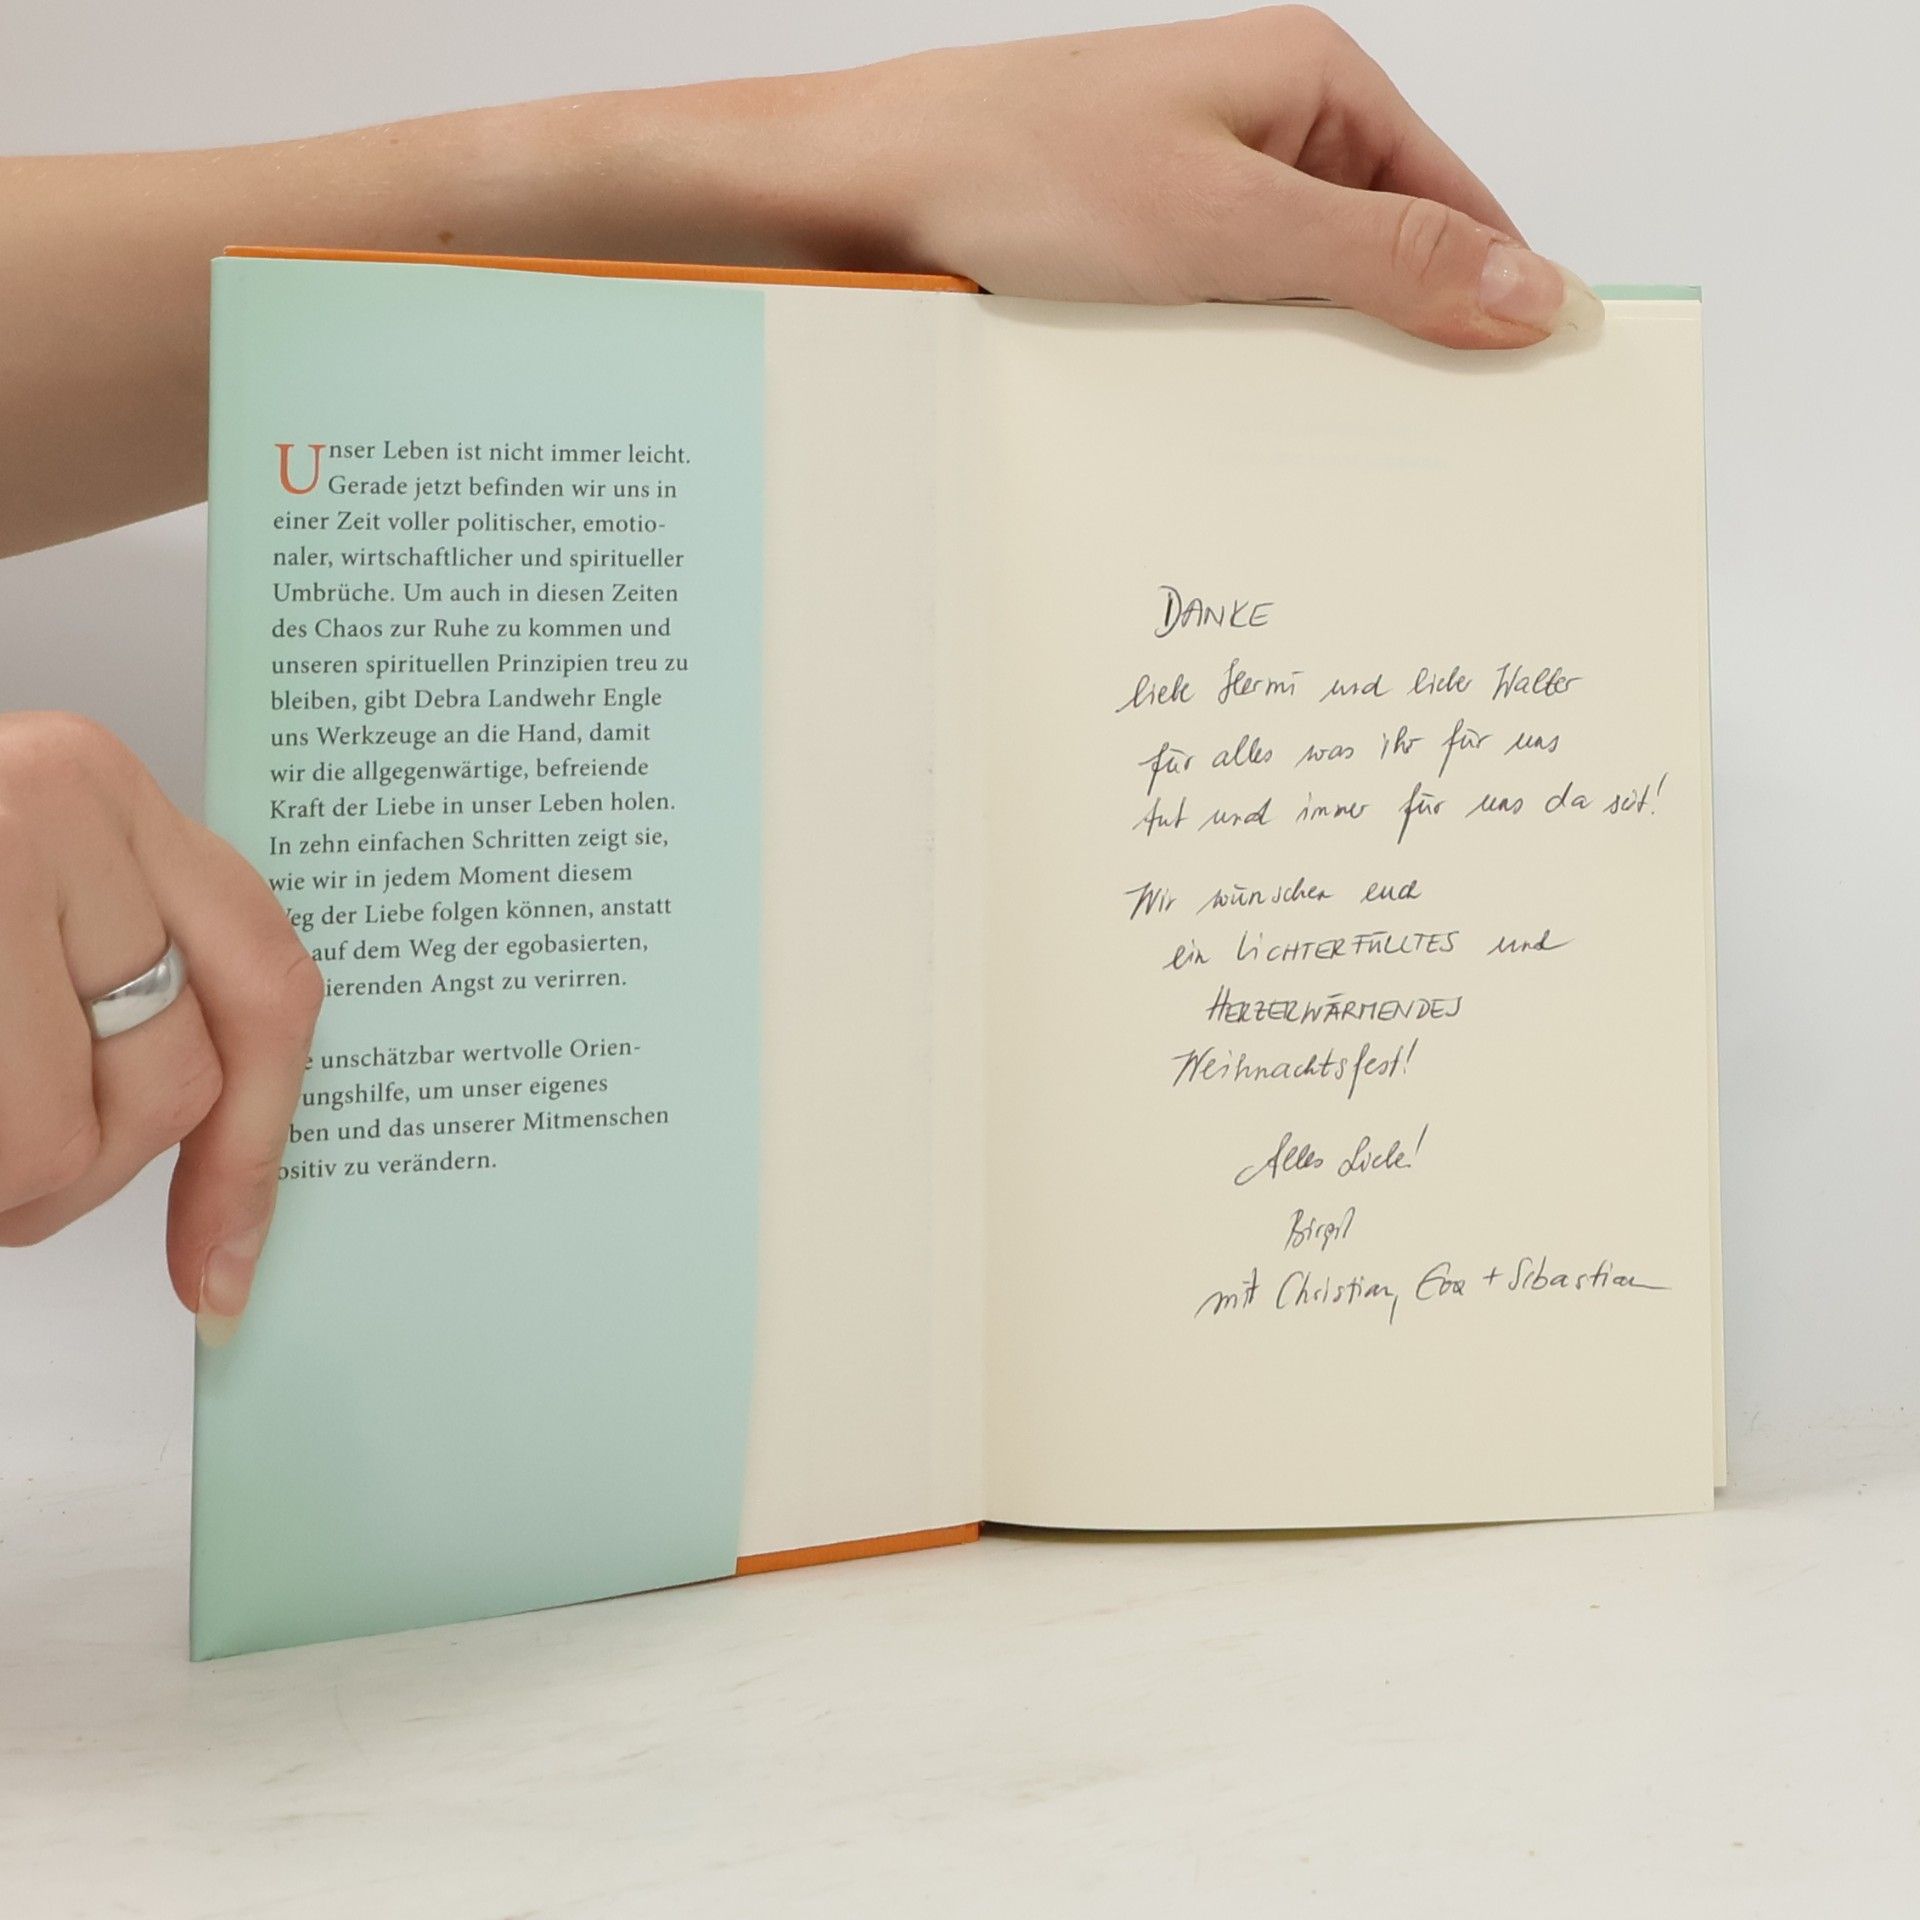 Unser Leben ist nicht immer leicht.
Gerade jetzt befinden wir uns in
einer Zeit voller politischer, emotio-
naler, wirtschaftlicher und spiritueller
Umbrüche. Um auch in diesen Zeiten
des Chaos zur Ruhe zu kommen und
unseren spirituellen Prinzipien treu zu
bleiben, gibt Debra Landwehr Engle
uns Werkzeuge an die Hand, damit
wir die allgegenwärtige, befreiende
Kraft der Liebe in unser Leben holen.
In zehn einfachen Schritten zeigt sie,
wie wir in jedem Moment diesem
eg der Liebe folgen können, anstatt
auf dem Weg der egobasierten,
ierenden Angst zu verirren.
e unschätzbar wertvolle Orien-
ungshilfe, um unser eigenes
ben und das unserer Mitmenschen
ositiv zu verändern.
DANKE
liebe Hermi und lieber Walter
für alles was ihr für uns
tut und immer für uns da seit!
Wir wünschen euch
ein LICHTERFÜLLTES und
HERZERWÄRMENDES
Weihnachtsfest!
Alles Liebe!
Birgit
mit Christian, Eva + Sebastian